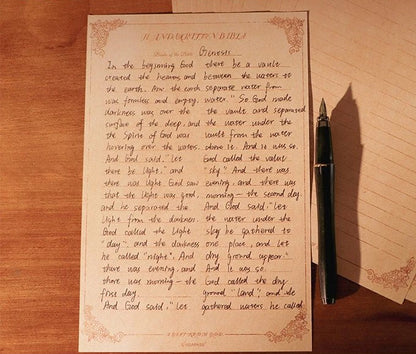 HANDWRITTEN BIBLE
Books of the Bible Genesis
In the beginning God
created the heavens and
the earth. Now the earth
was formless and empty,
darkness was over the
surface of the deep, and
the Spirit of God was
hovering over the waters.
And God said, "Let
there be light," and
there was light. God saw
that the light was good,
and he separated the
light from the darkness.
God called the light
"day", and the darkness
he called "night". And
there was evening, and
there was morning — the
first day.
And God said, "Let
there be a vault
between the waters to
separate water from
water." So God made
the vault and separated
the water under the
vault from the water
above it. And it was so.
God called the vault
"sky". And there was
evening, and there was
morning — the second day.
And God said, "Let
the water under the
sky be gathered to
one place, and let
dry ground appear."
And it was so.
God called the dry
ground "land", and the
gathered waters he called